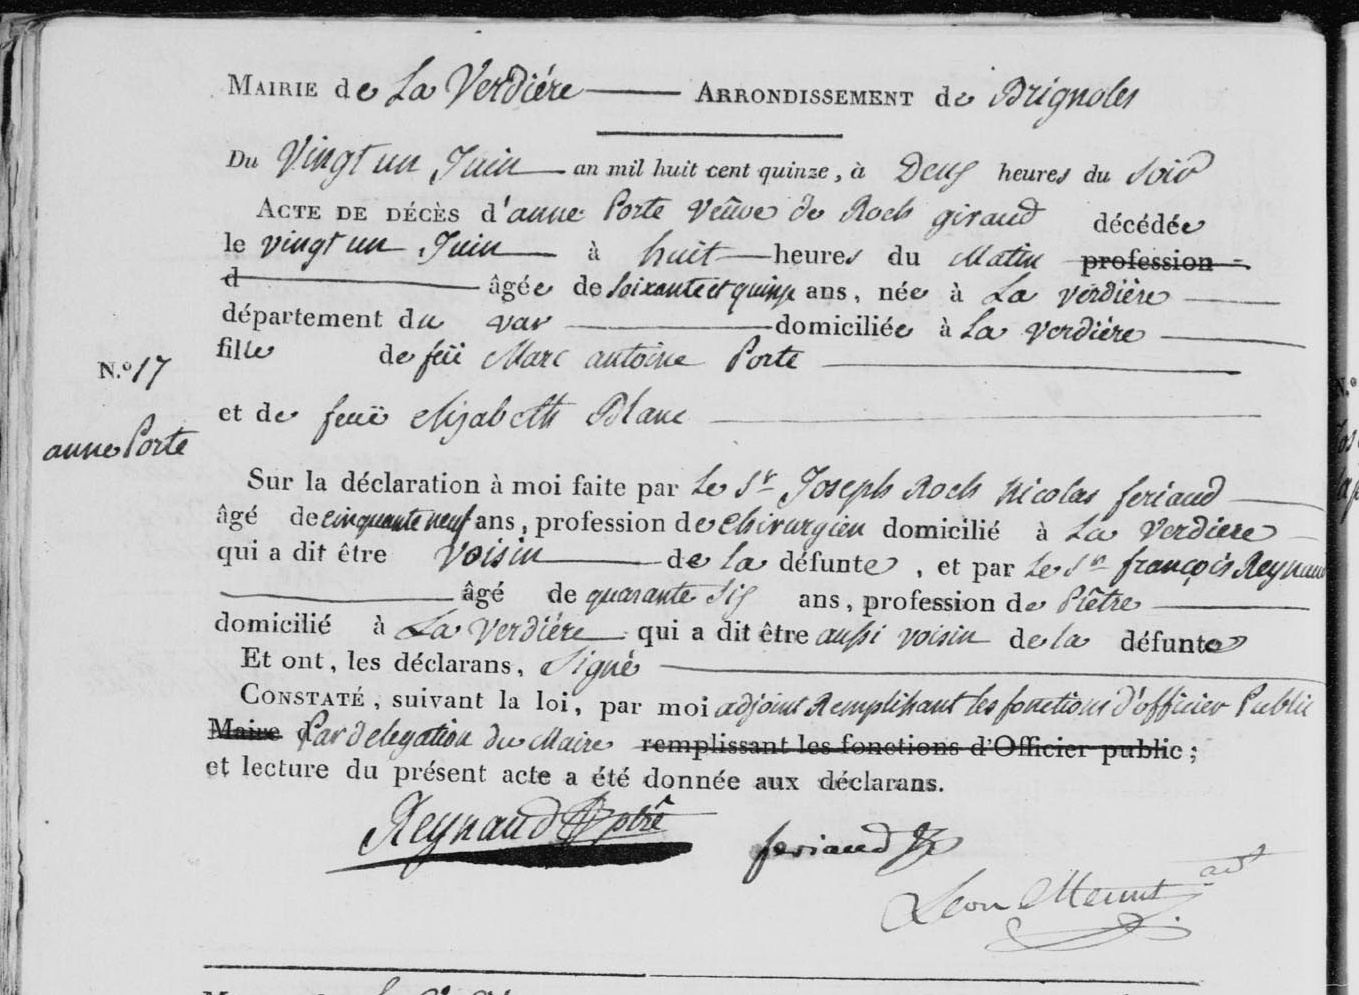 Mairie de La Verdiére Arrondissement de Brignoles
Du Vingt un Juin an mil huit cent quinze, à Deux heures du Soir
Acte de décès d'anne Porte Veûve de Roch giraud décédée
le vingt un Juin à huit heures du Matin profession
d âgée de soixante et quinze ans, née à La Verdière
département du var domiciliée à La Verdiére
fille de feü Marc antoine Porte
N.º 17
et de feuë elizabeth Blanc
anne Porte
Sur la déclaration à moi faite par Le Sr Joseph Roch Nicolas feriaud
âgé de cinquante neuf ans, profession de Chirurgien domicilié à La Verdiere
qui a dit être Voisin de la défunte, et par Le Sr françois Reynaud
âgé de quarante Six ans, profession de Prêtre
domicilié à La Verdiére qui a dit être aussi voisin de la défunte
Et ont, les déclarans, Signé
Constaté, suivant la loi, par moi adjoint Remplissant les fonctions d'officier Public
Maire d Par delegation du Maire remplissant les fonctions d'Officier public;
et lecture du présent acte a été donnée aux déclarans.
Reynaud ptre
feriaud
Leon adt